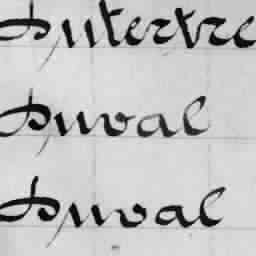 Dutertre
Duval
Duval